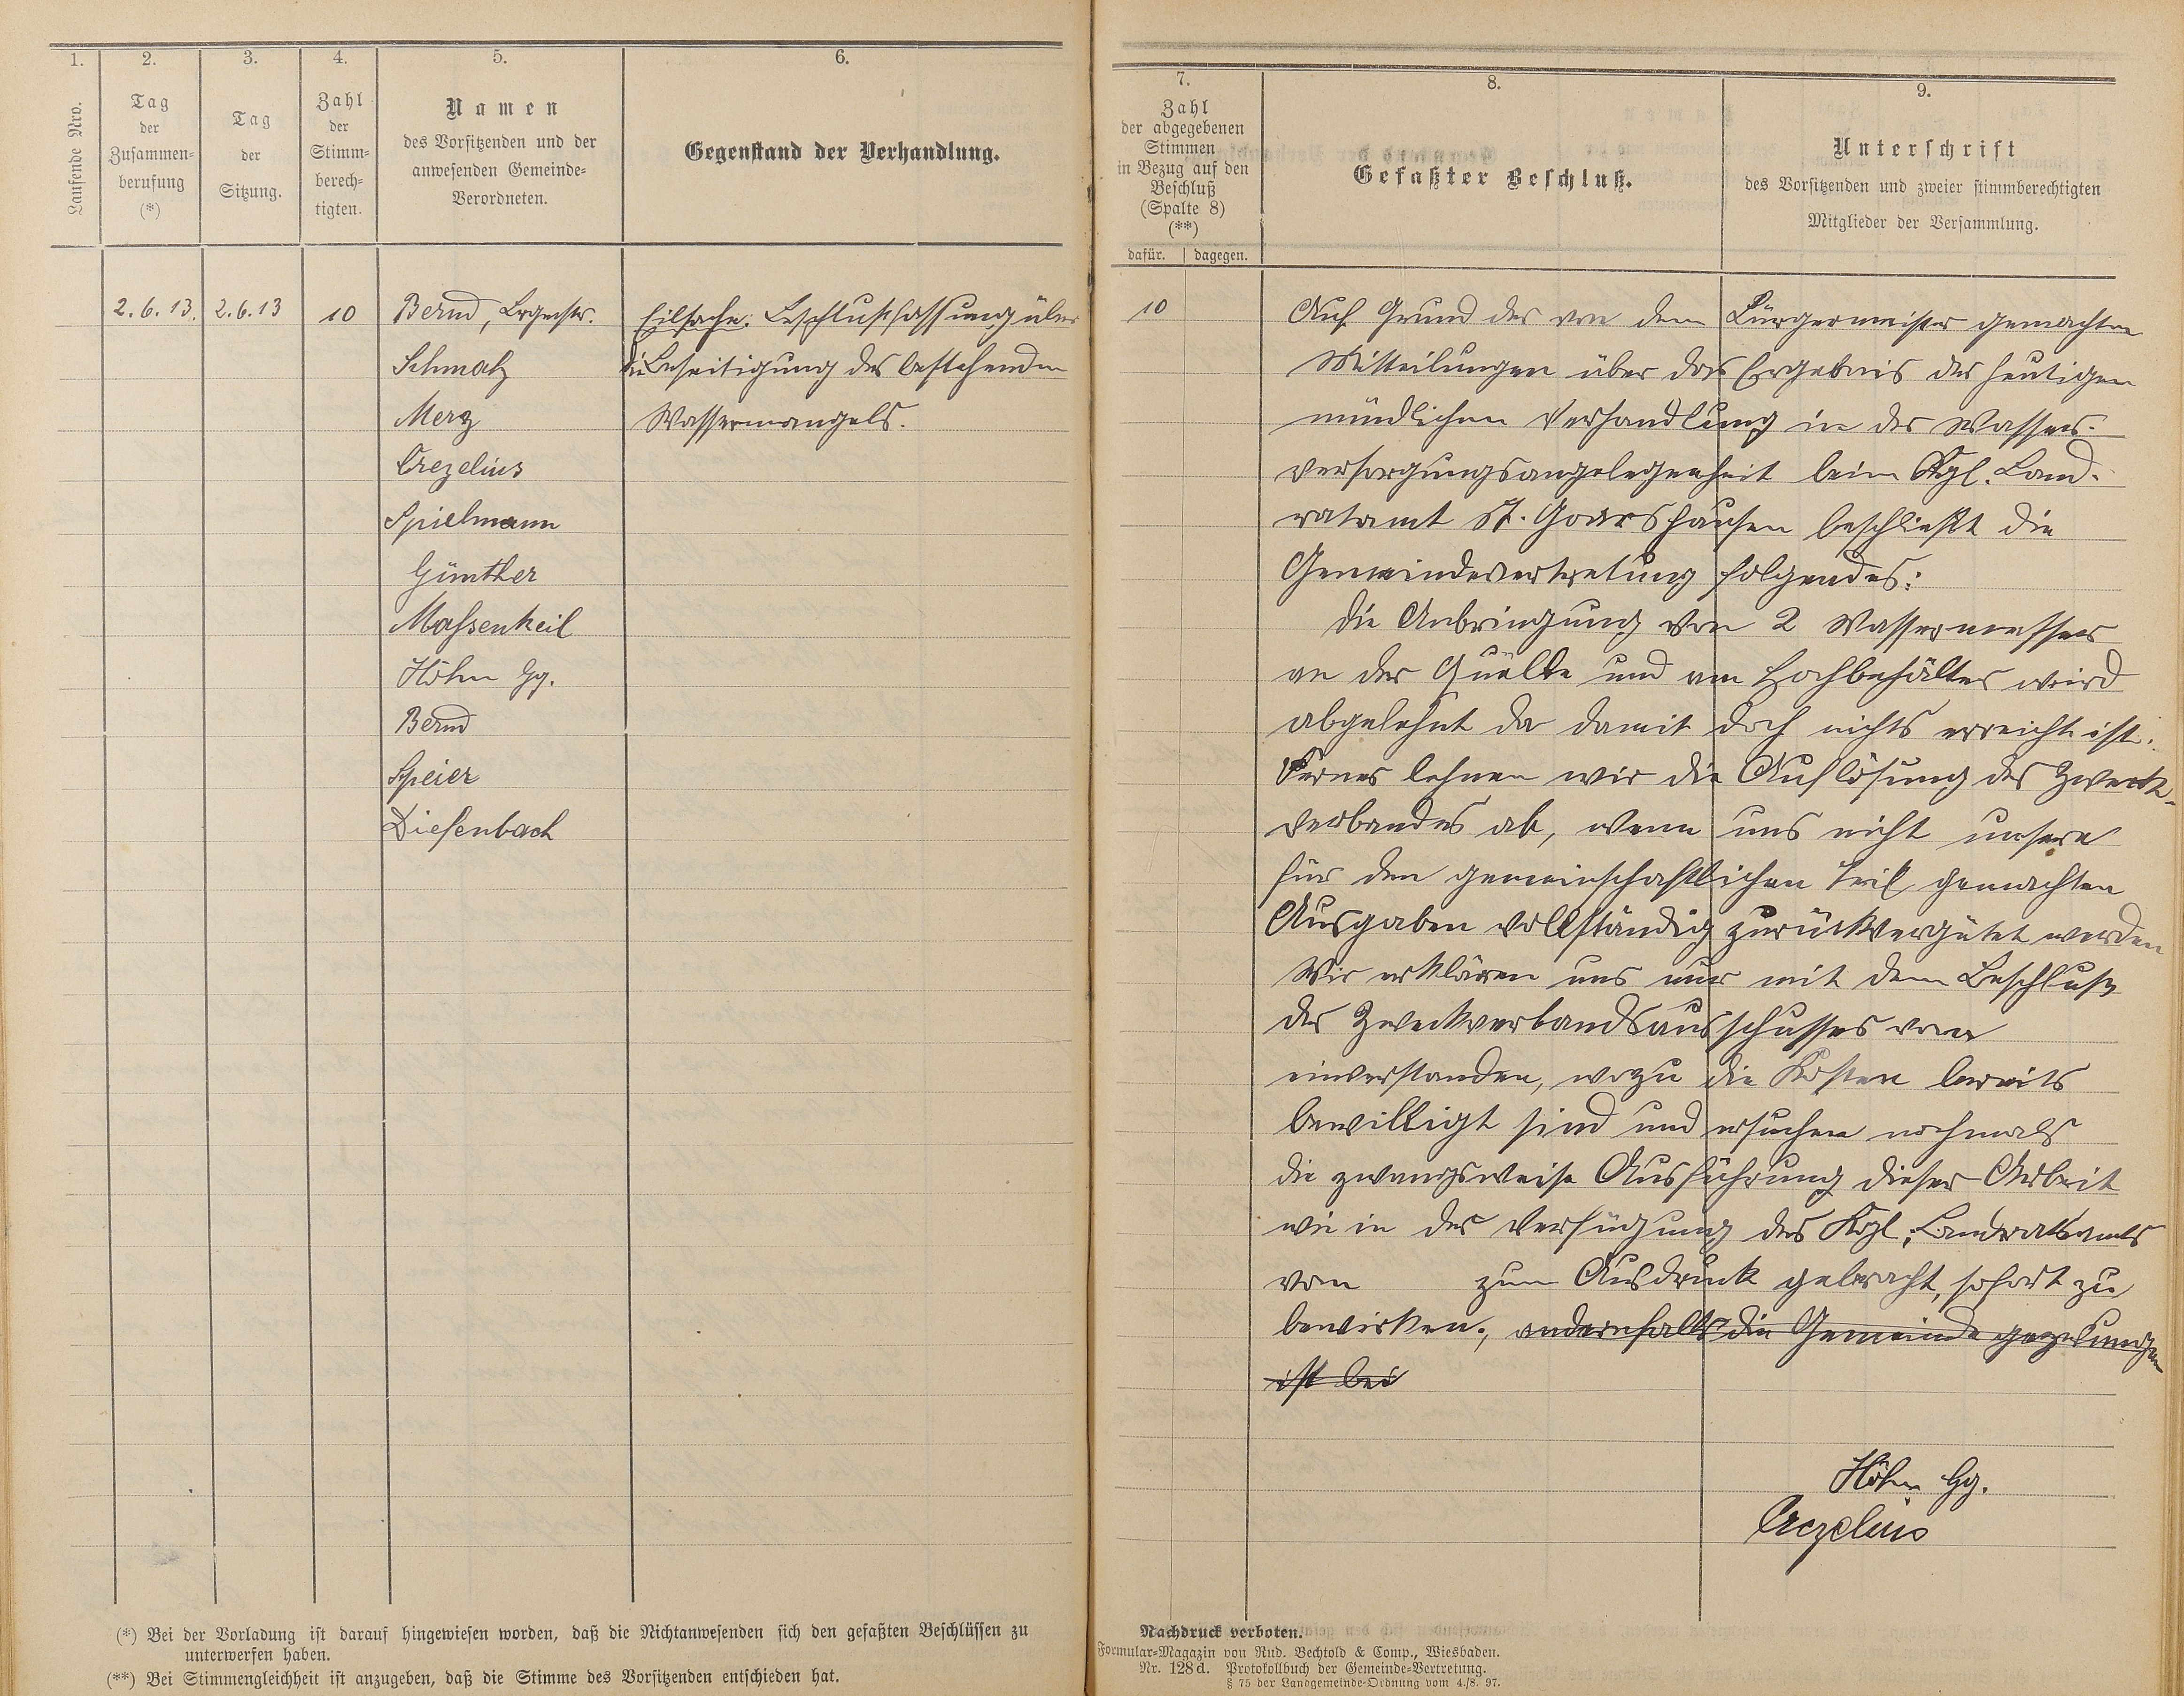 1.
2.
3.
4.
5.
6.
Laufende Nro.
Tag
der
Zusammen=
berufung
(*)
Tag
der
Sitzung.
Zahl
der
Stimm=
berech=
tigten.
Namen
des Vorsitzenden und der
anwesenden Gemeinde=
Verordneten.
Gegenstand der Verhandlung.
2.6.13. 2.6.13 10 Bernd, Brgmstr. Eilsache. Beschlußfassung über
Schmalz die Beseitigung des bestehenden
Merz Wassermangels.
Crezelius
Spielmann
Günther
Maſsenkeil
Höhn Gg.
Bernd
Speier
Diefenbach
(*) Bei der Vorladung ist darauf hingewiesen worden, daß die Nichtanwesenden sich den gefaßten Beschlüssen zu
unterwerfen haben.
(**) Bei Stimmengleichheit ist anzugeben, daß die Stimme des Vorsitzenden entschieden hat.
7.
8.
9.
Zahl
der abgegebenen
Stimmen
in Bezug auf den
Beschluß
(Spalte 8)
(**)
dafür. dagegen.
Gefaßter Beschluß.
Unterschrift
des Vorsitzenden und zweier stimmberechtigten
Mitglieder der Versammlung.
10 Auf Grund der von dem Bürgermeister gemachten
Mitteilungen über das Ergebnis der heutigen
mündlichen Verhandlung in der Wasser-
versorgungsangelegenheit beim Kgl. Land-
ratamt St. Goarshausen beschließt die
Gemeindevertretung folgendes:
Die Anbringung von 2 Wassermesser
an der Quelle und am Hochbehälter wird
abgelehnt da damit doch nichts erreicht ist.
Ferner lehnen wir die Auflösung des Zweck-
verbandes ab, wenn uns nicht unsere
für den gemeinschaftlichen Teil gemachten
Ausgaben vollständig zurückvergütet werden
Wir erklären uns nur mit dem Beschluß
des Zweckverbandsausschusses vom
einverstanden, wozu die Kosten bereits
bewilligt sind und ersuchen nochmals
die zwangsweise Ausführung dieser Arbeit
wie in der Verfügung des Kgl. Landratsamts
vom zum Ausdruck gebracht, sofort zu
bewirken., andernfalls die Gemeinde gezwungen
ist bei
Höhn Gg.
Crezelius
Nachdruck verboten.
Formular=Magazin von Rud. Bechtold & Comp., Wiesbaden.
Nr. 128 d. Protokollbuch der Gemeinde=Vertretung.
§ 75 der Landgemeinde=Ordnung vom 4./8. 97.